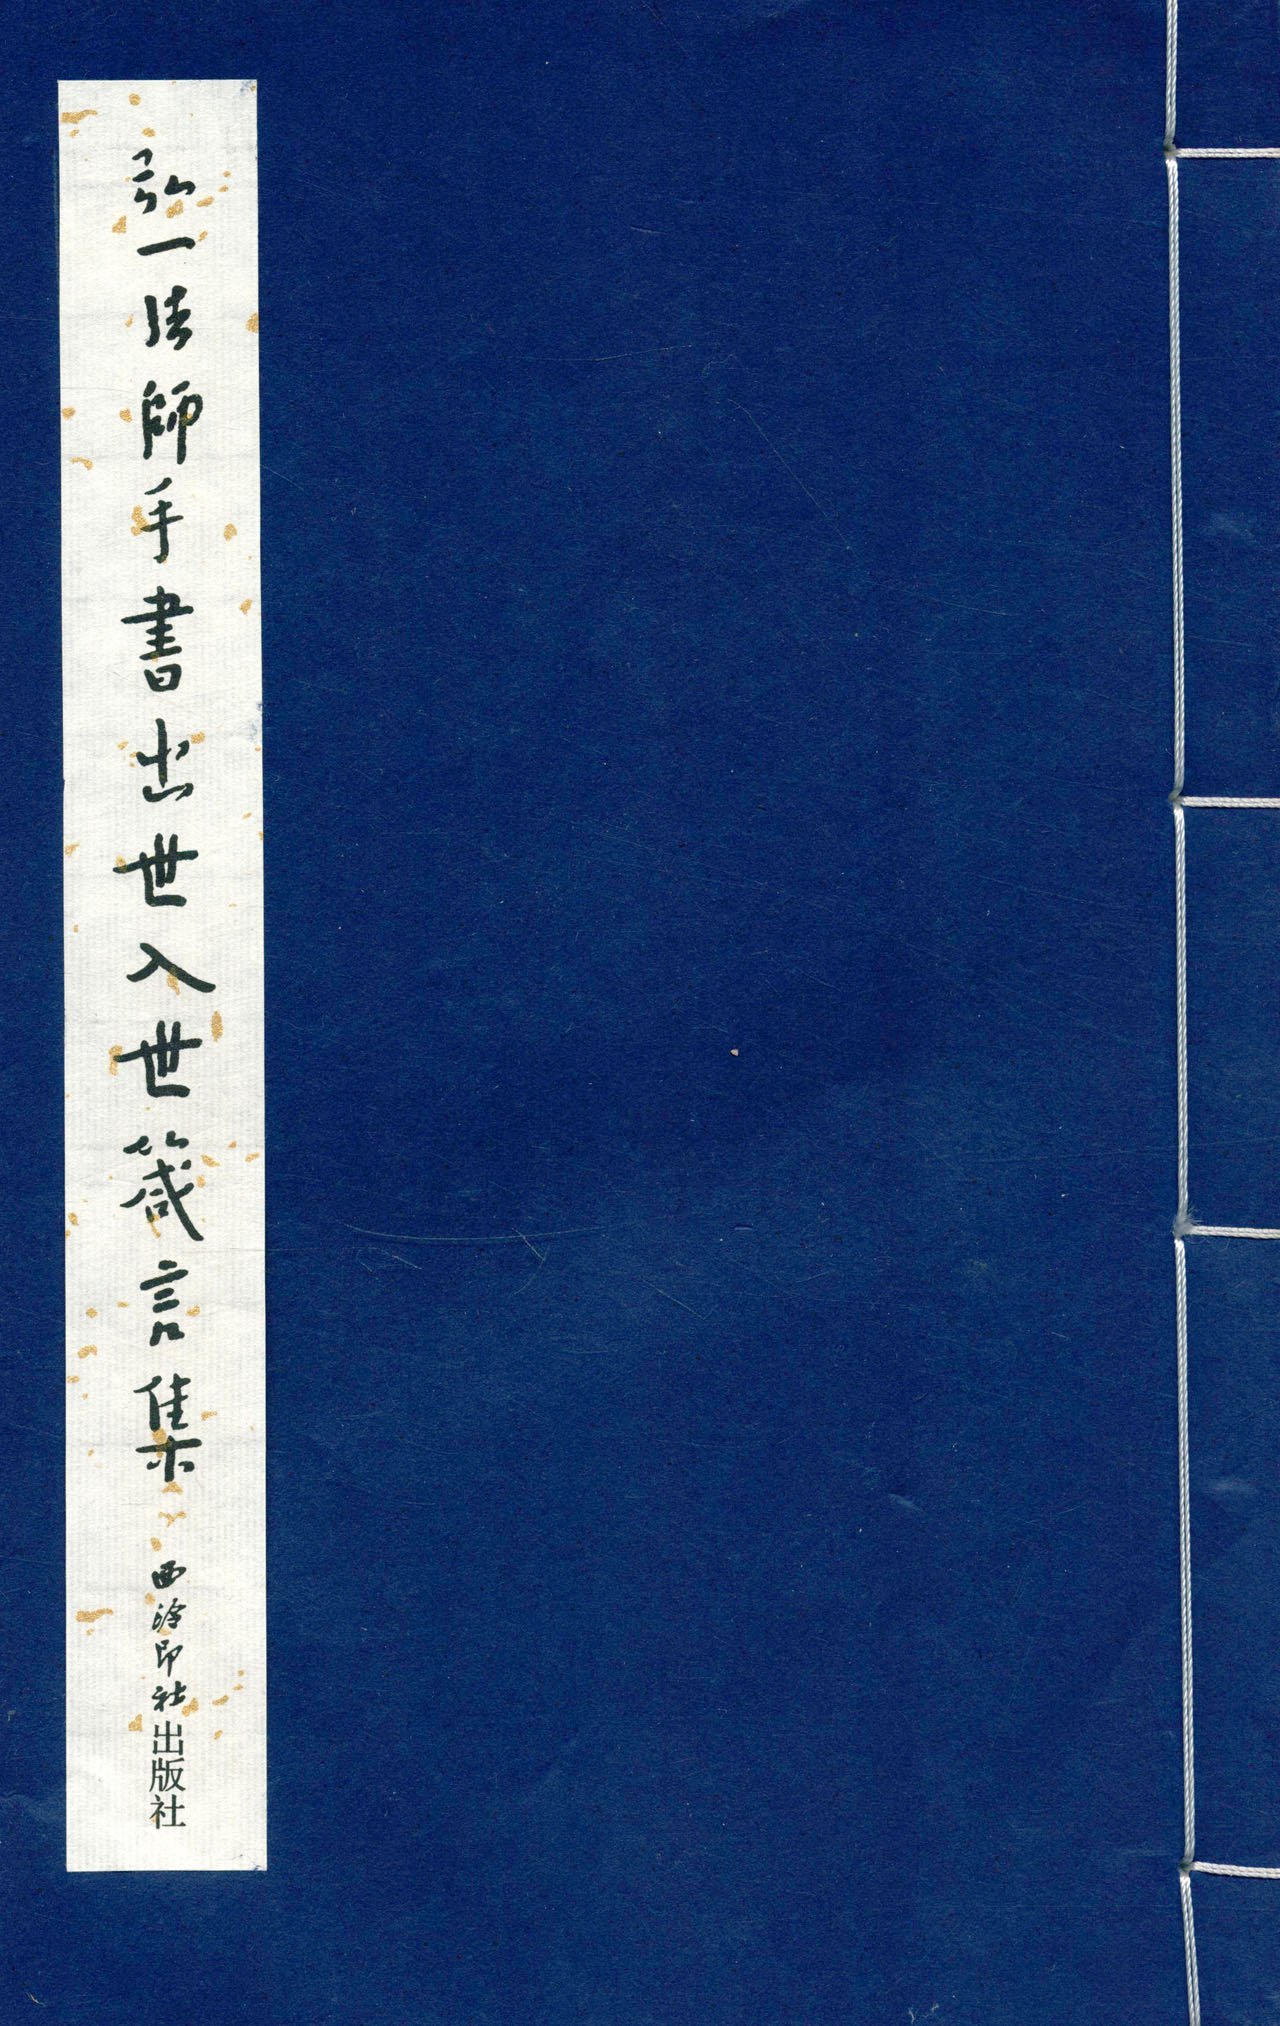 弘一法師手書出世入世箴言集
西泠印社出版社